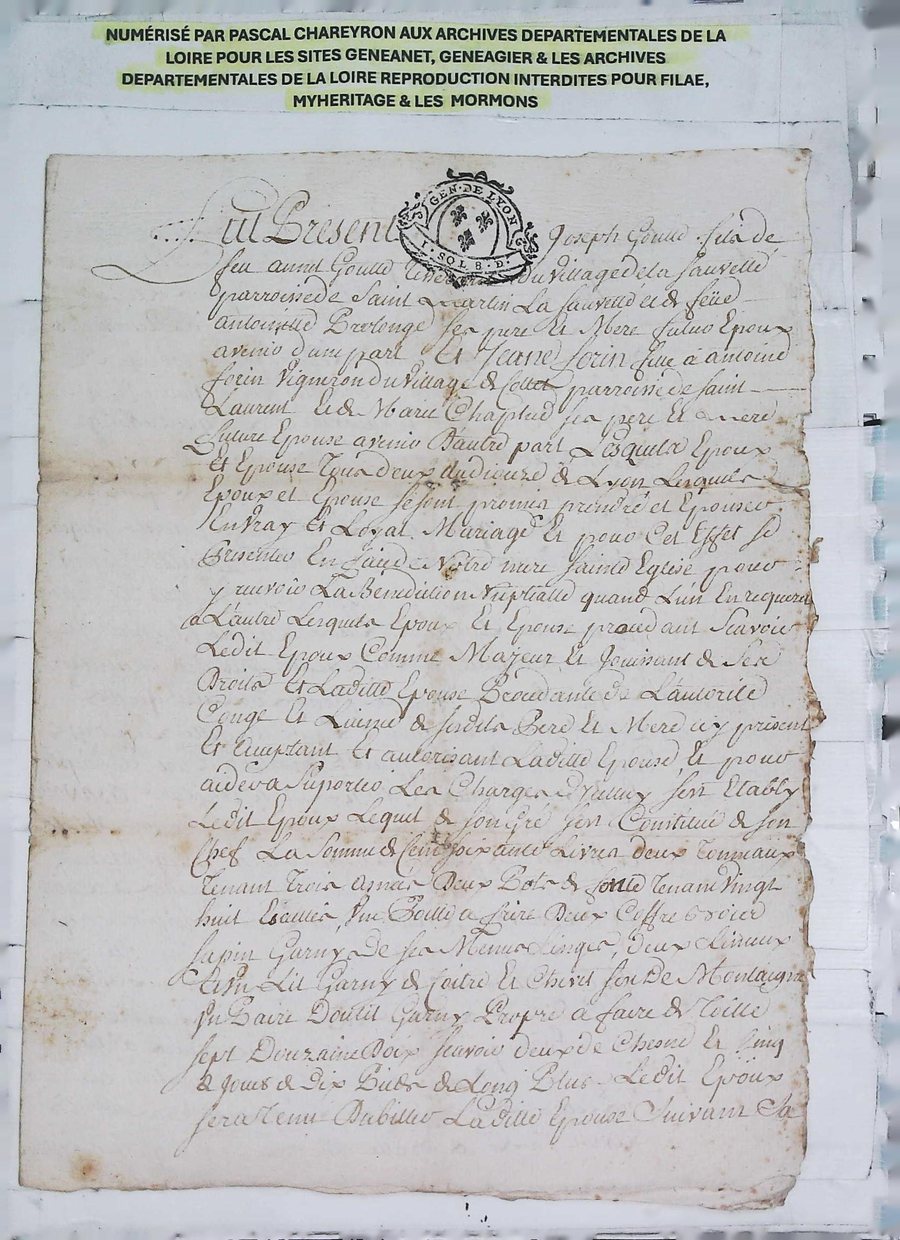 NUMÉRISÉ PAR PASCAL CHAREYRON AUX ARCHIVES DEPARTEMENTALES DE LA
LOIRE POUR LES SITES GENEANET, GENEAGIER & LES ARCHIVES
DEPARTEMENTALES DE LA LOIRE REPRODUCTION INTERDITES POUR FILAE,
MYHERITAGE & LES MORMONS
GEN·DE LYON
1·SOL 8·D·
fut Present Joseph Goutte fils de
feu annet Goutte du village de la sauvetté
parroisse de Saint martin La sauvetté et de feüe
antoinette Prolonge ses pere et Mere futur Epoux
avenir d'une part Et Jeanne forin fille a antoine
forin vigneron du village de Collet parroisse de saint
Laurent et de Marie Chaptud ses pere et mere
future Epouse avenir D'autre part Lesquels Epoux
et Epouse Tous deux du diocèze de Lyon Lesquels
Epoux et Epouse se sont promis prendre et Epouser
En vray et Loyal Mariage Et pour Cet Effet se
Presenter En face de Notre mere sainte Eglise pour
y recevoir La Benediction Nuptialle quand L'un En requerra
L'autre Lesquels Epoux Et Epouse procedant scavoir
Ledit Epoux Comme Majeur Et Jouissant de ses
Droits Et Laditte Epouse Procedante de L'autorité
Congé Et Licence de sesdits Pere et Mere icy present
Et acceptant Et autorisant Laditte Epouse, Et pour
aider a suporter Les Charges d'yceluy s'en Etably
Ledit Epoux Lequel de son Gré s'en Constitué de son
Chef La somme de Cent soixante Livres deux Tonneaux
Tenant Trois anées Deux Pots de fonte Tenant vingt
huit Ecuelles, une Poille a frire Deux Coffre
sapin Garny de ses Menus Linges, deux Linceux
Et un Lit Garny de Coitre et Chevet
un Paire D'outil Garny Propre a faire de Toille
sept Douzaine Boix scavoir deux de Chesne Et Cinq
de Dix Pieds de Long Plus Ledit Epoux
sera Tenu D'abiller Laditte Epouse suivant sa